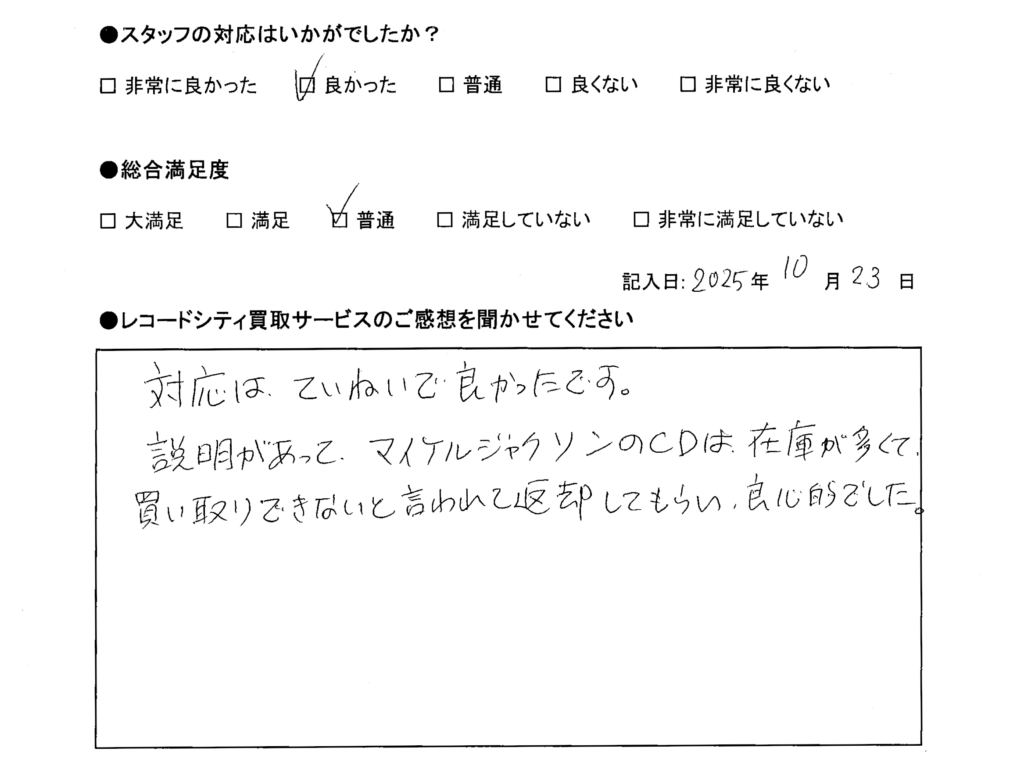 ●スタッフの対応はいかがでしたか？
□ 非常に良かった ☑ 良かった □ 普通 □ 良くない □ 非常に良くない
●総合満足度
□ 大満足 □ 満足 ☑ 普通 □ 満足していない □ 非常に満足していない
記入日: 2025年 10 月 23 日
●レコードシティ買取サービスのご感想を聞かせてください
対応は、ていねいで良かったです。
説明があって、マイケルジャクソンのCDは、在庫が多くて、
買い取りできないと言われて返却してもらい、良心的でした。